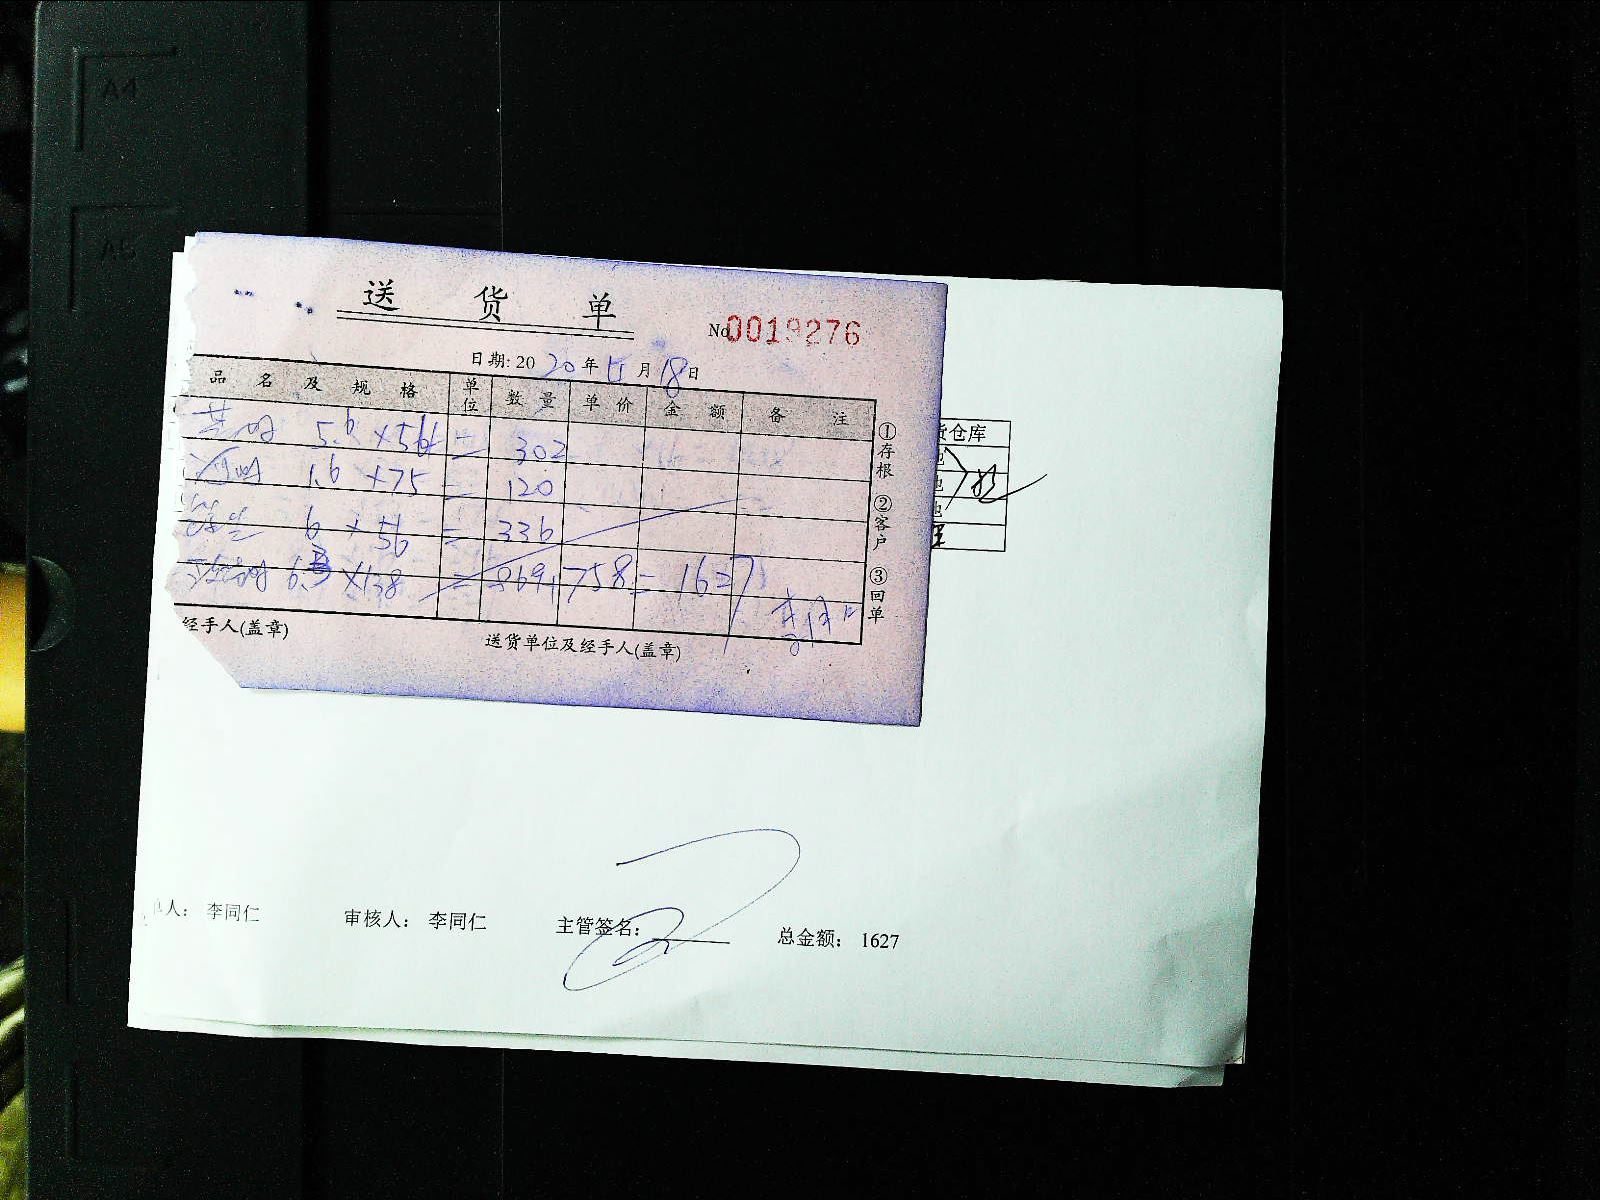 A4
A5
送货单
No 0019276
日期: 2020年11月18日
品名及规格 单位 数量 单价 金额 备注
5.6 ×54 = 302
1.6 ×75 = 120
6 ×56 = 336
6.3 ×138 = 869 + 758 = 1627
①存根 ②客户 ③回单
经手人(盖章)
送货单位及经手人(盖章)
货仓库
人: 李同仁 审核人: 李同仁 主管签名: 总金额: 1627